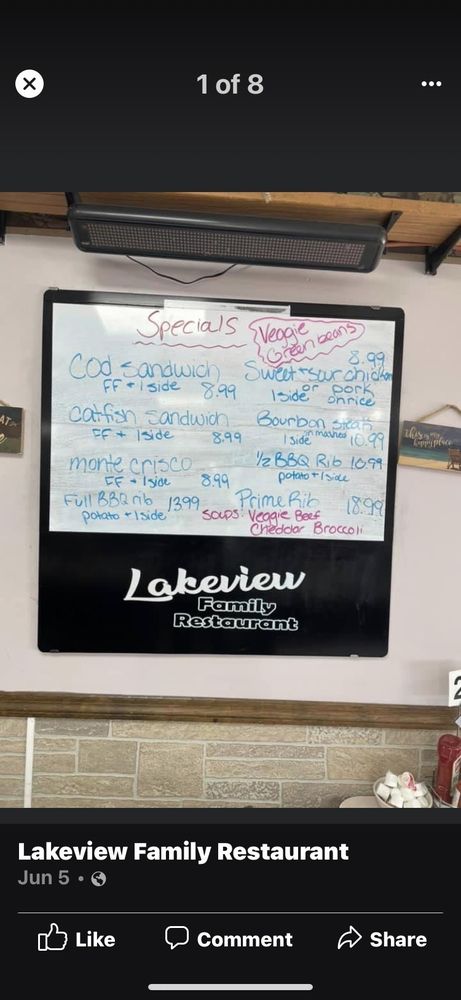 1 of 8
Specials
Veggie
Green beans
Cod sandwich
FF + 1 side 8.99
Catfish sandwich
FF + 1 side 8.99
monte crisco
FF + 1 side 8.99
Full BBQ rib 1399
potato + 1 side
8.99
Sweet + sour chicken
or pork
1 side on rice
Bourbon steak
1 side in mashed 10.99
1/2 BBQ Rib 10.99
potato + 1 side
Prime Rib 18.99
soups: Veggie Beef
Cheddar Broccoli
This is my
happy place
Lakeview
Family
Restaurant
2
Lakeview Family Restaurant
Jun 5
Like
Comment
Share